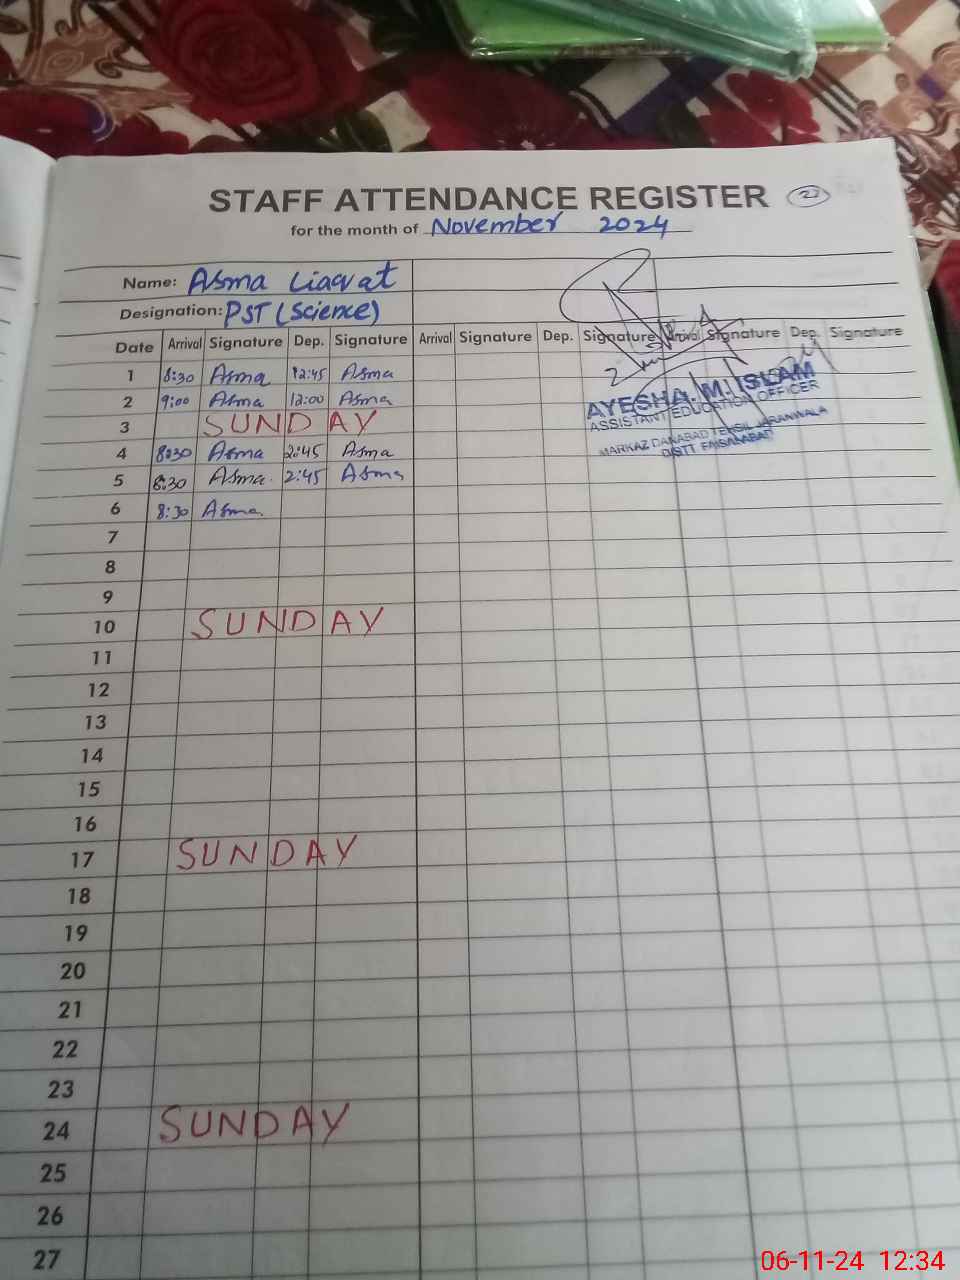 STAFF ATTENDANCE REGISTER 22
for the month of November 2024
Name: Asma Liaqvat
Designation: PST (Science)
Date Arrival Signature Dep. Signature Arrival Signature Dep. Signature Arrival Signature Dep. Signature
1 8:30 Asma 12:45 Asma
2 9:00 Asma 12:00 Asma
AYESHA. M. ISLAM
ASSISTANT EDUCATION OFFICER
3 SUNDAY
MARKAZ DANABAD TEHSIL JARANWALA
DISTT FAISALABAD
4 8:30 Asma 2:45 Asma
5 8:30 Asma. 2:45 Asma
6 8:30 Asma.
7
8
9
10 SUNDAY
11
12
13
14
15
16
17 SUNDAY
18
19
20
21
22
23
24 SUNDAY
25
26
27
06-11-24 12:34